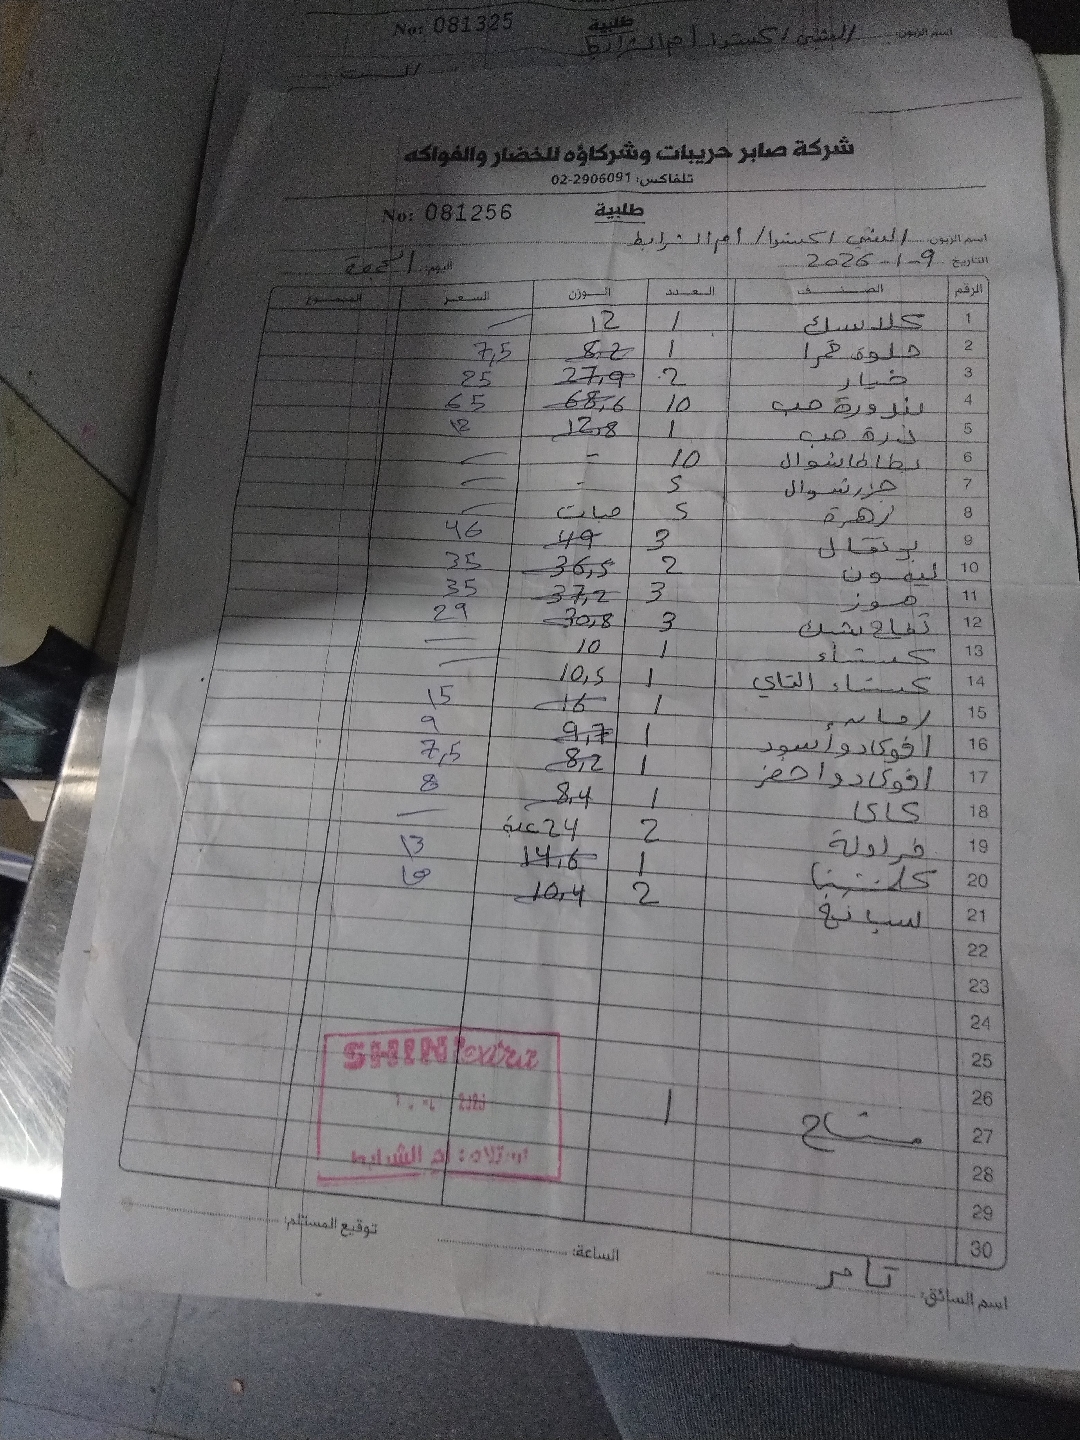 No: 081325
طلبية
اسم الزبون:
شركة صابر حريبات وشركاؤه للخضار والفواكه
تلفاكس: 02-2906091
No: 081256
طلبية
اسم الزبون: البيني اكسترا / أم الشرايط
التاريخ 9-1-2026
اليوم: الجمعة
الرقم الصنف العدد الوزن السعر المجموع
1 كلاسك 1 12 —
2 حلوة حمرا 1 8,2 7,5
3 خيار 2 27,9 25
4 بندورة حب 10 68,6 65
5 ذرة حب 1 12,8 12
6 بطاطا شوال 10 - —
7 جزر شوال 5 - —
8 زهرة 5 حبات —
9 برتقال 3 49 46
10 ليمون 2 36,5 35
11 موز 3 37,2 35
12 تفاح 3 30,8 29
13 كستناء 1 10 —
14 كستناء 1 10,5 —
15 رمان 1 16 15
16 افوكادو أسود 1 9,7 9
17 افوكادو اخضر 1 8,2 7,5
18 كاكا 1 8,4 8
19 فراولة 2 24 علبة —
20 كلمنتينا 1 14,6 13
21 سبانخ 2 10,4
22
23
24
25
26
27 مشاح 1
28
29
30
SHINI extra
استلام: ام الشرايط
توقيع المستلم:
الساعة:
اسم السائق: تامر